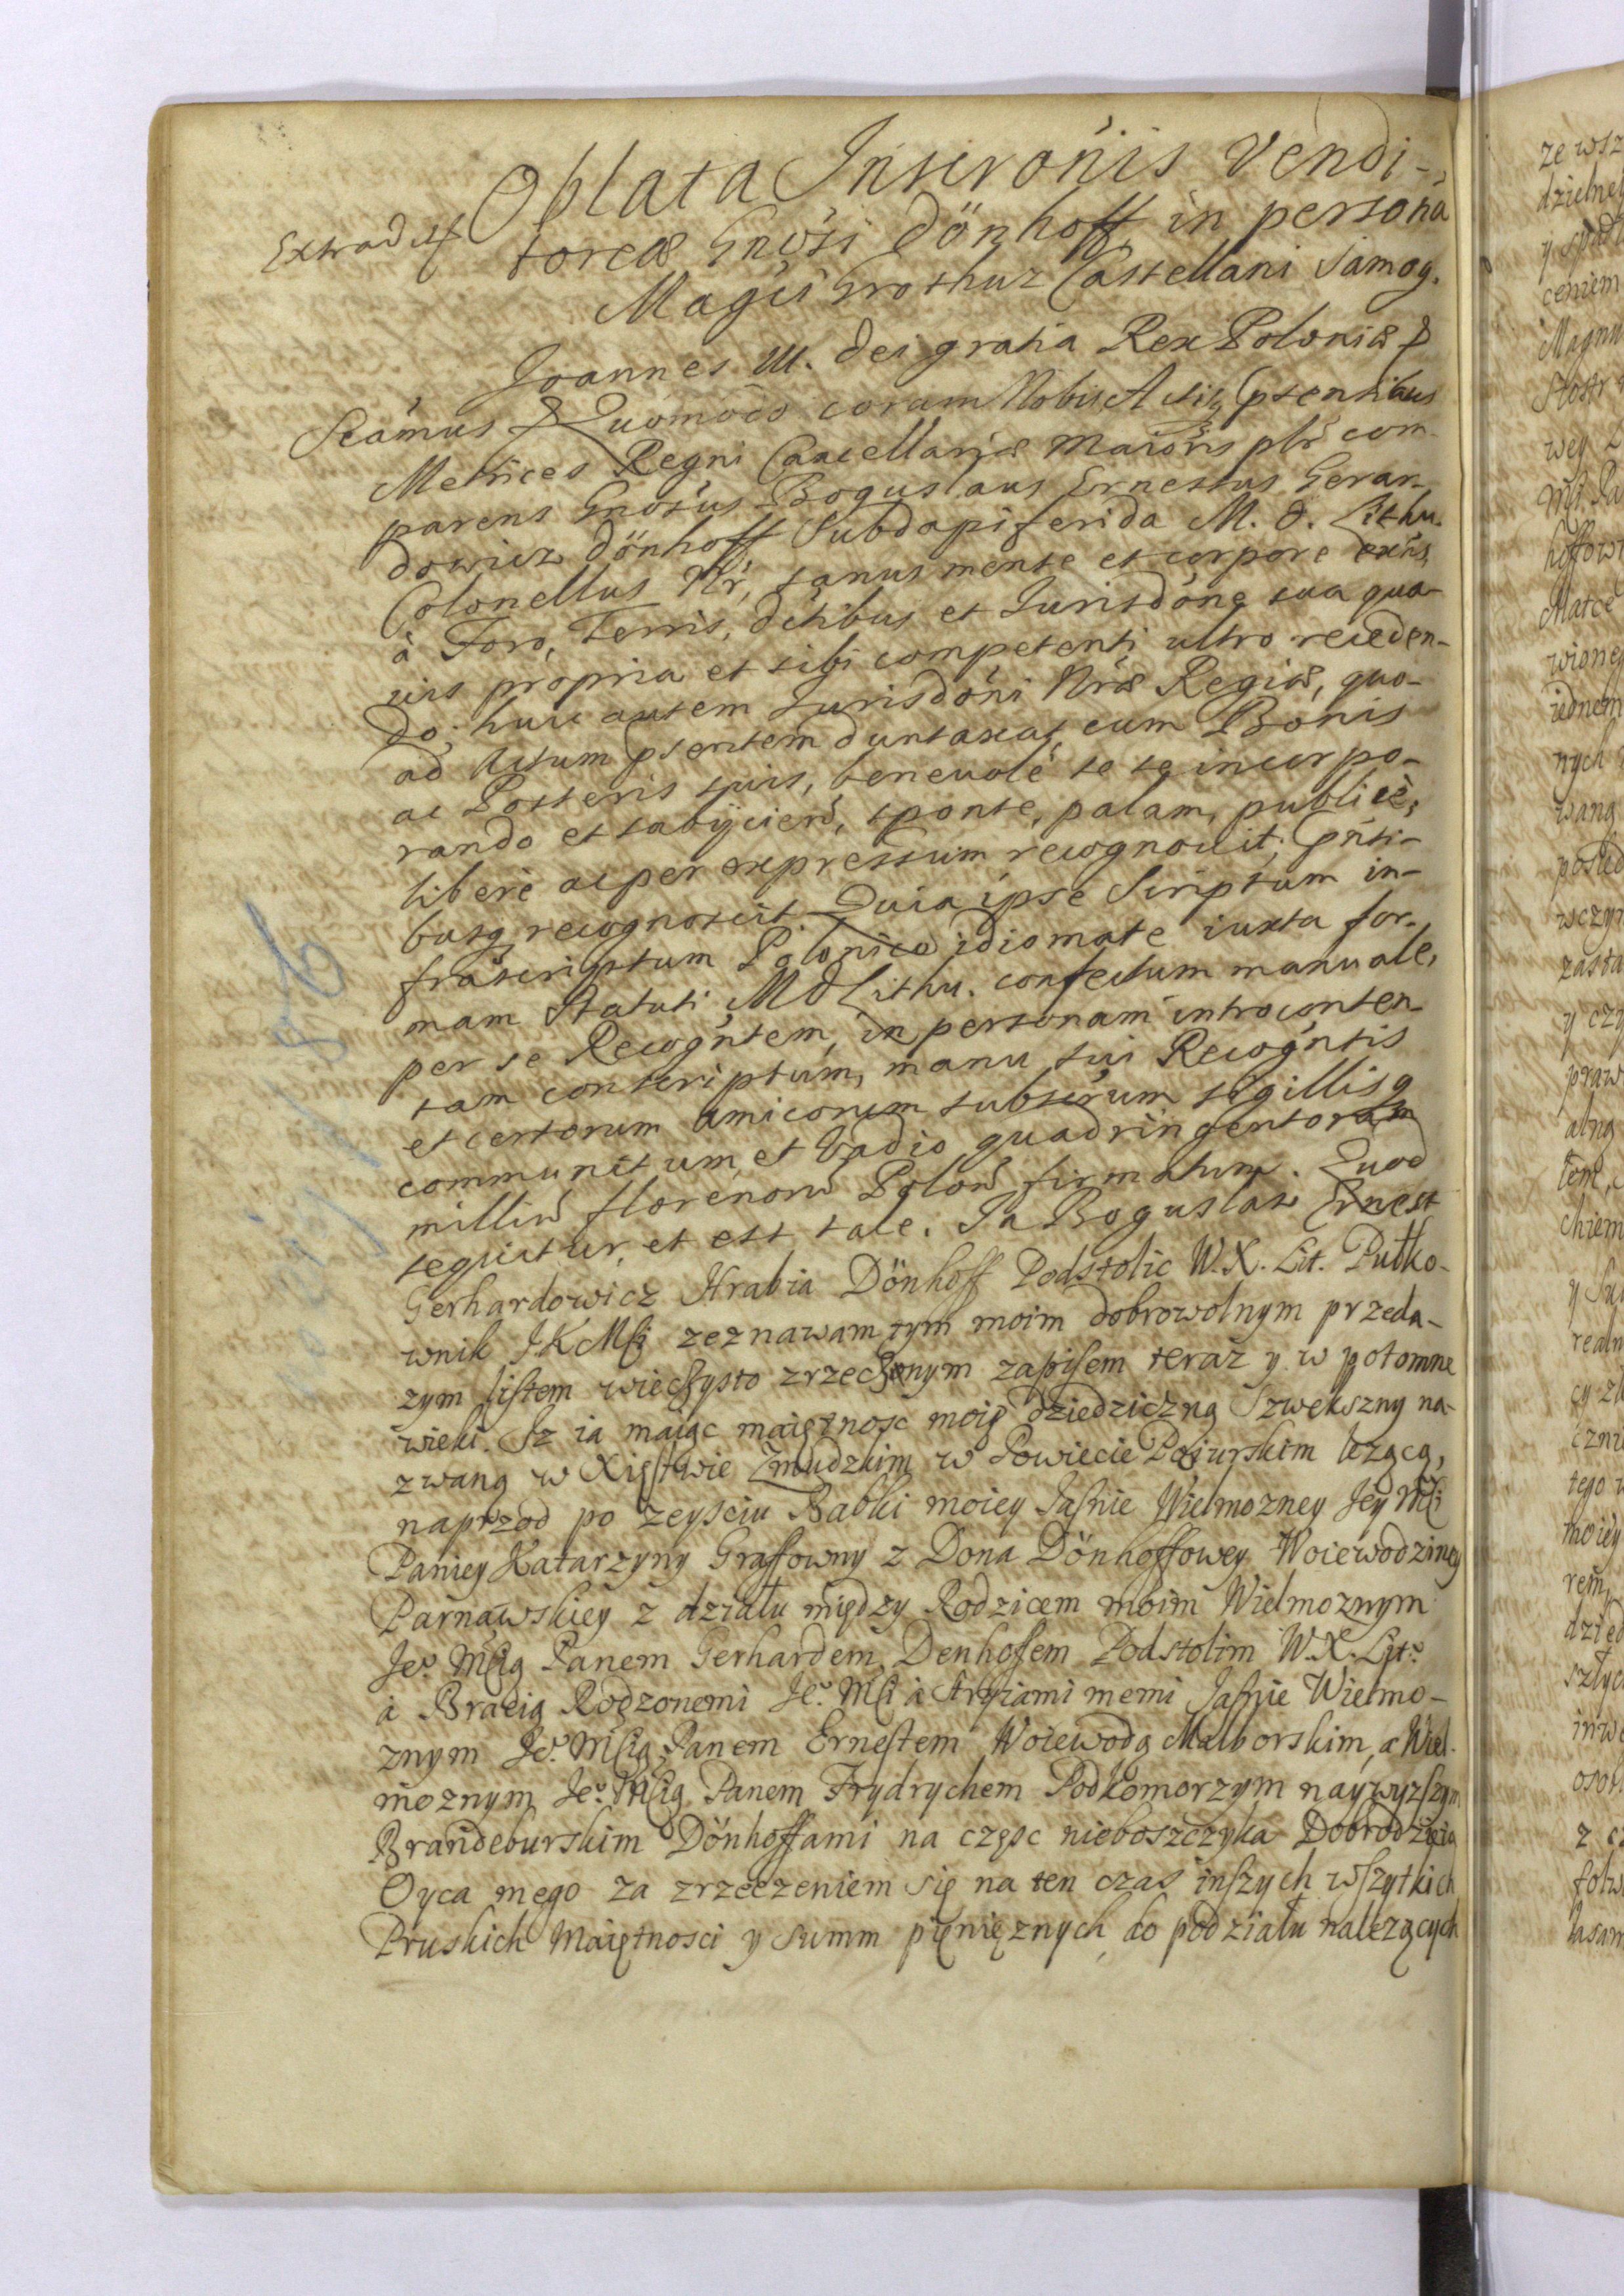 Oblata Inscrönis Vendi-
Extradit
toreæ Gnösi Dönhoff in persona
Magci Grothuz Castellani Samog.
Joannes III. Dei gratia Rex Poloniæ &
Scämus & Quomodo coram Nobis Actisq, psentibus
Metrices Regni Cancellariæ Maioris plr com-
parens Gnosus Boguslaus Ernestus Gerar-
dowicz Dönhoff Subdapiferida M. D. Lithu.
Colonellus Nr, sanus mente et corpore exns,
à Foro, Terris, dctibus et Jurisdöne sua qua-
uis propria et sibi competenti ultro receden-
do; huic autem Jurisdöni Nræ Regiæ, quo-
ad Actum psentem duntaxat cum Bonis
ac Posteris suis, beneuolè se se incorpo-
rando et subijciend, sponte, palam, publicè,
liberè ac per expressum recognouit, pnti-
busq, recognoscit Quia ipse Scriptum in-
frascriptum Polonico idiomate iuxta for-
mam Statuti M D Lithu. confectum manuale,
per se Recogntem, in personam introconten-
tam conscriptum, manu sui Recogntis
et certorum amicorum subscrum sigillisq
communitum, et Vadio quadringentorum
milliu florenoru Polon firmatum. Quod
sequitur, et est tale. Ja Boguslaw Ernest
Gerhardowicz Hrabia Dönhoff Podstolic W.X. Lit. Pułko-
wnik JKMśi zeznawam tym moim dobrowolnym przeda-
zym listem wieczysto zrzeczonym zapisem teraz y w potomne
wieki. Iz ia maiąc maiętnosc moię dziedziczną Szwekszny na-
zwaną w Xięstwie Zmudzkim w Powiecie Pojurskim lezącą,
naprzod po zeysciu Babki moiey Jasnie Wielmozney Jey Mśi
Paniey Katarzyny Graffowny z Dona Dönhoffowey Woiewodziney
Parnawskiey z działu między Rodzicem moim Wielmoznym
Je° Mśią Panem Gerhardem Denhofem Podstolim W.X. Lit°
à Bracią Rodzonemi Je° Mśi à Stryiami memi Jasnie Wielmo-
znym Je° Mśią Panem Ernestem Woiewodą Malborskim, a Wiel-
moznym Je° Mśią Panem Frydrychem Podkomorzym naywyzszym
Brandeburskim Dönhoffami na częsc nieboszczyka Dobrodzieia
Oyca mego za zrzeczeniem się na ten czas inszych wszytkich
Pruskich Maiętnosci y summ pięnięznych do podziału nalezących